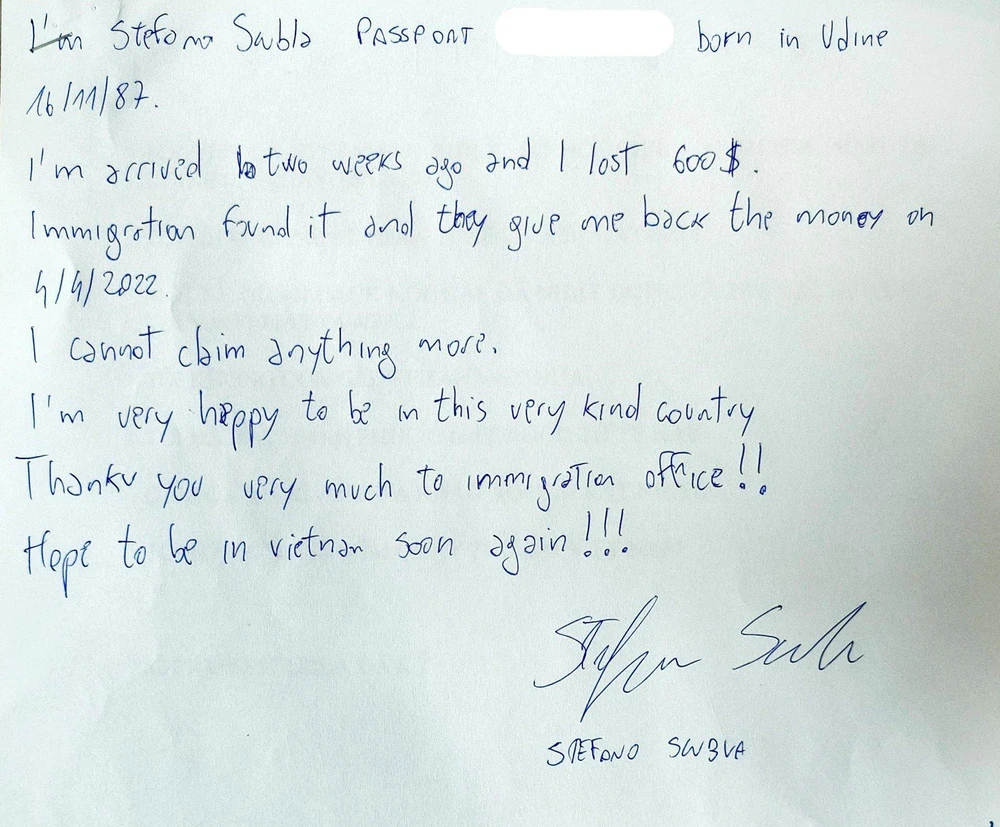 I'm Stefano Swbla PASSPORT born in Udine
16/11/87.
I'm arrived two weeks ago and I lost 600$.
Immigration found it and they give me back the money on
4/4/2022.
I cannot claim anything more.
I'm very happy to be in this very kind country
Thankv you very much to immigration office!!
Hope to be in vietnam soon again!!!
STEFANO